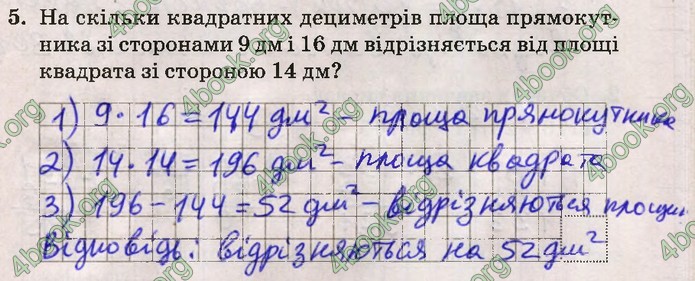 5. На скільки квадратних дециметрів площа прямокут-
ника зі сторонами 9 дм і 16 дм відрізняється від площі
квадрата зі стороною 14 дм?
1) 9 · 16 = 144 дм² – площа прянокутника
2) 14 · 14 = 196 дм² – площа квадрата
3) 196 – 144 = 52 дм² – відрізняються площи
Відповідь: відрізняються на 52 дм²